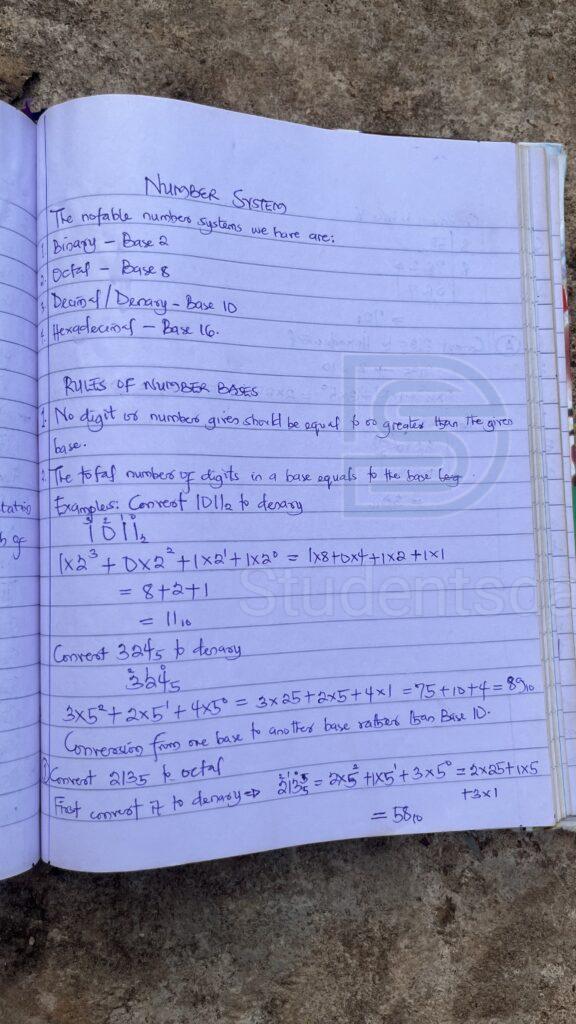 NUMBER SYSTEM
The notable number systems we have are:
1. Binary – Base 2
2. Octal – Base 8
3. Decimal/Denary – Base 10
4. Hexadecimal – Base 16.
RULES OF NUMBER BASES
1. No digit or number given should be equal to or greater than the given
base.
2. The total number of digits in a base equals to the base
Examples: Convert 1011₂ to denary
³1 ²0 ¹1 ⁰1₂
1×2³ + 0×2² + 1×2¹ + 1×2⁰ = 1×8+0×4+1×2+1×1
= 8+2+1
= 11₁₀
Convert 324₅ to denary
²3 ¹2 ⁰4₅
3×5² + 2×5¹ + 4×5⁰ = 3×25+2×5+4×1 = 75+10+4 = 89₁₀
Conversion from one base to another base rather than Base 10.
① Convert 213₅ to octal
First convert it to denary ⇒ ²2 ¹1 ⁰3₅ = 2×5² + 1×5¹ + 3×5⁰ = 2×25+1×5
+3×1
= 58₁₀
tatio
h of
Studentsda